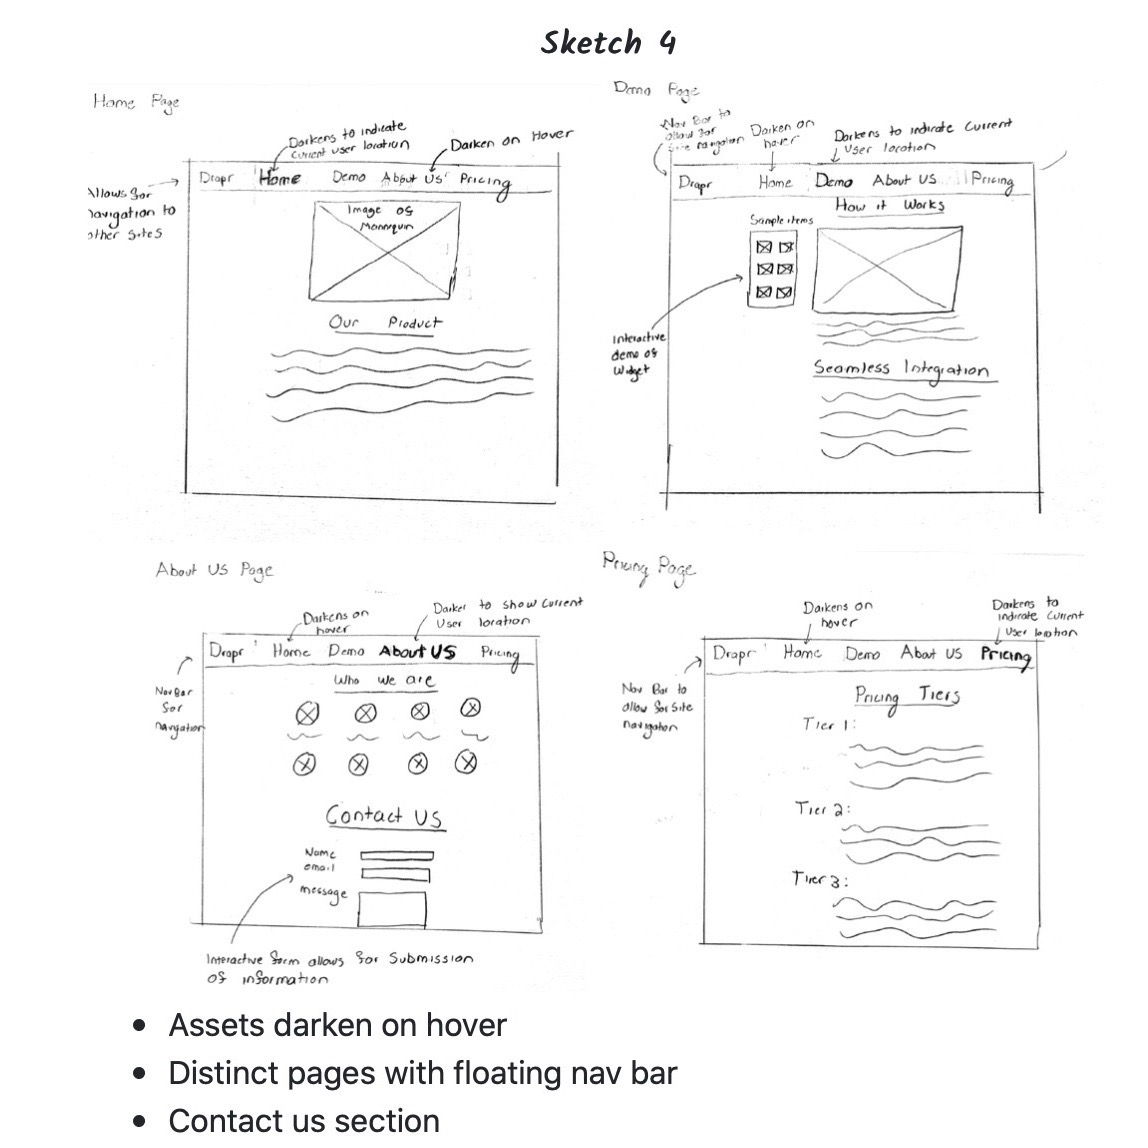 Sketch 4
Home Page
Darkens to indicate
current user location
Darken on Hover
Allows for
navigation to
other sites
Drapr Home Demo About Us Pricing
Image of
Mannequin
Our Product
Demo Page
Nav Bar to
allow for
site navigation
Darken on
hover
Darkens to indicate current
user location
Drapr Home Demo About US Pricing
How it Works
Sample items
Interactive
demo of
Widget
Seamless Integration
About US Page
Darkens on
hover
to show current
User location
Drapr Home Demo About US Pricing
Nav Bar
for
navigation
Who we are
Contact US
Name
email
message
Interactive form allows for submission
of information
Pricing Page
Darkens on
hover
Darkens to
indicate current
User location
Drapr Home Demo About US Pricing
Nav Bar to
allow for site
navigation
Pricing Tiers
Tier 1:
Tier 2:
Tier 3:
• Assets darken on hover
• Distinct pages with floating nav bar
• Contact us section